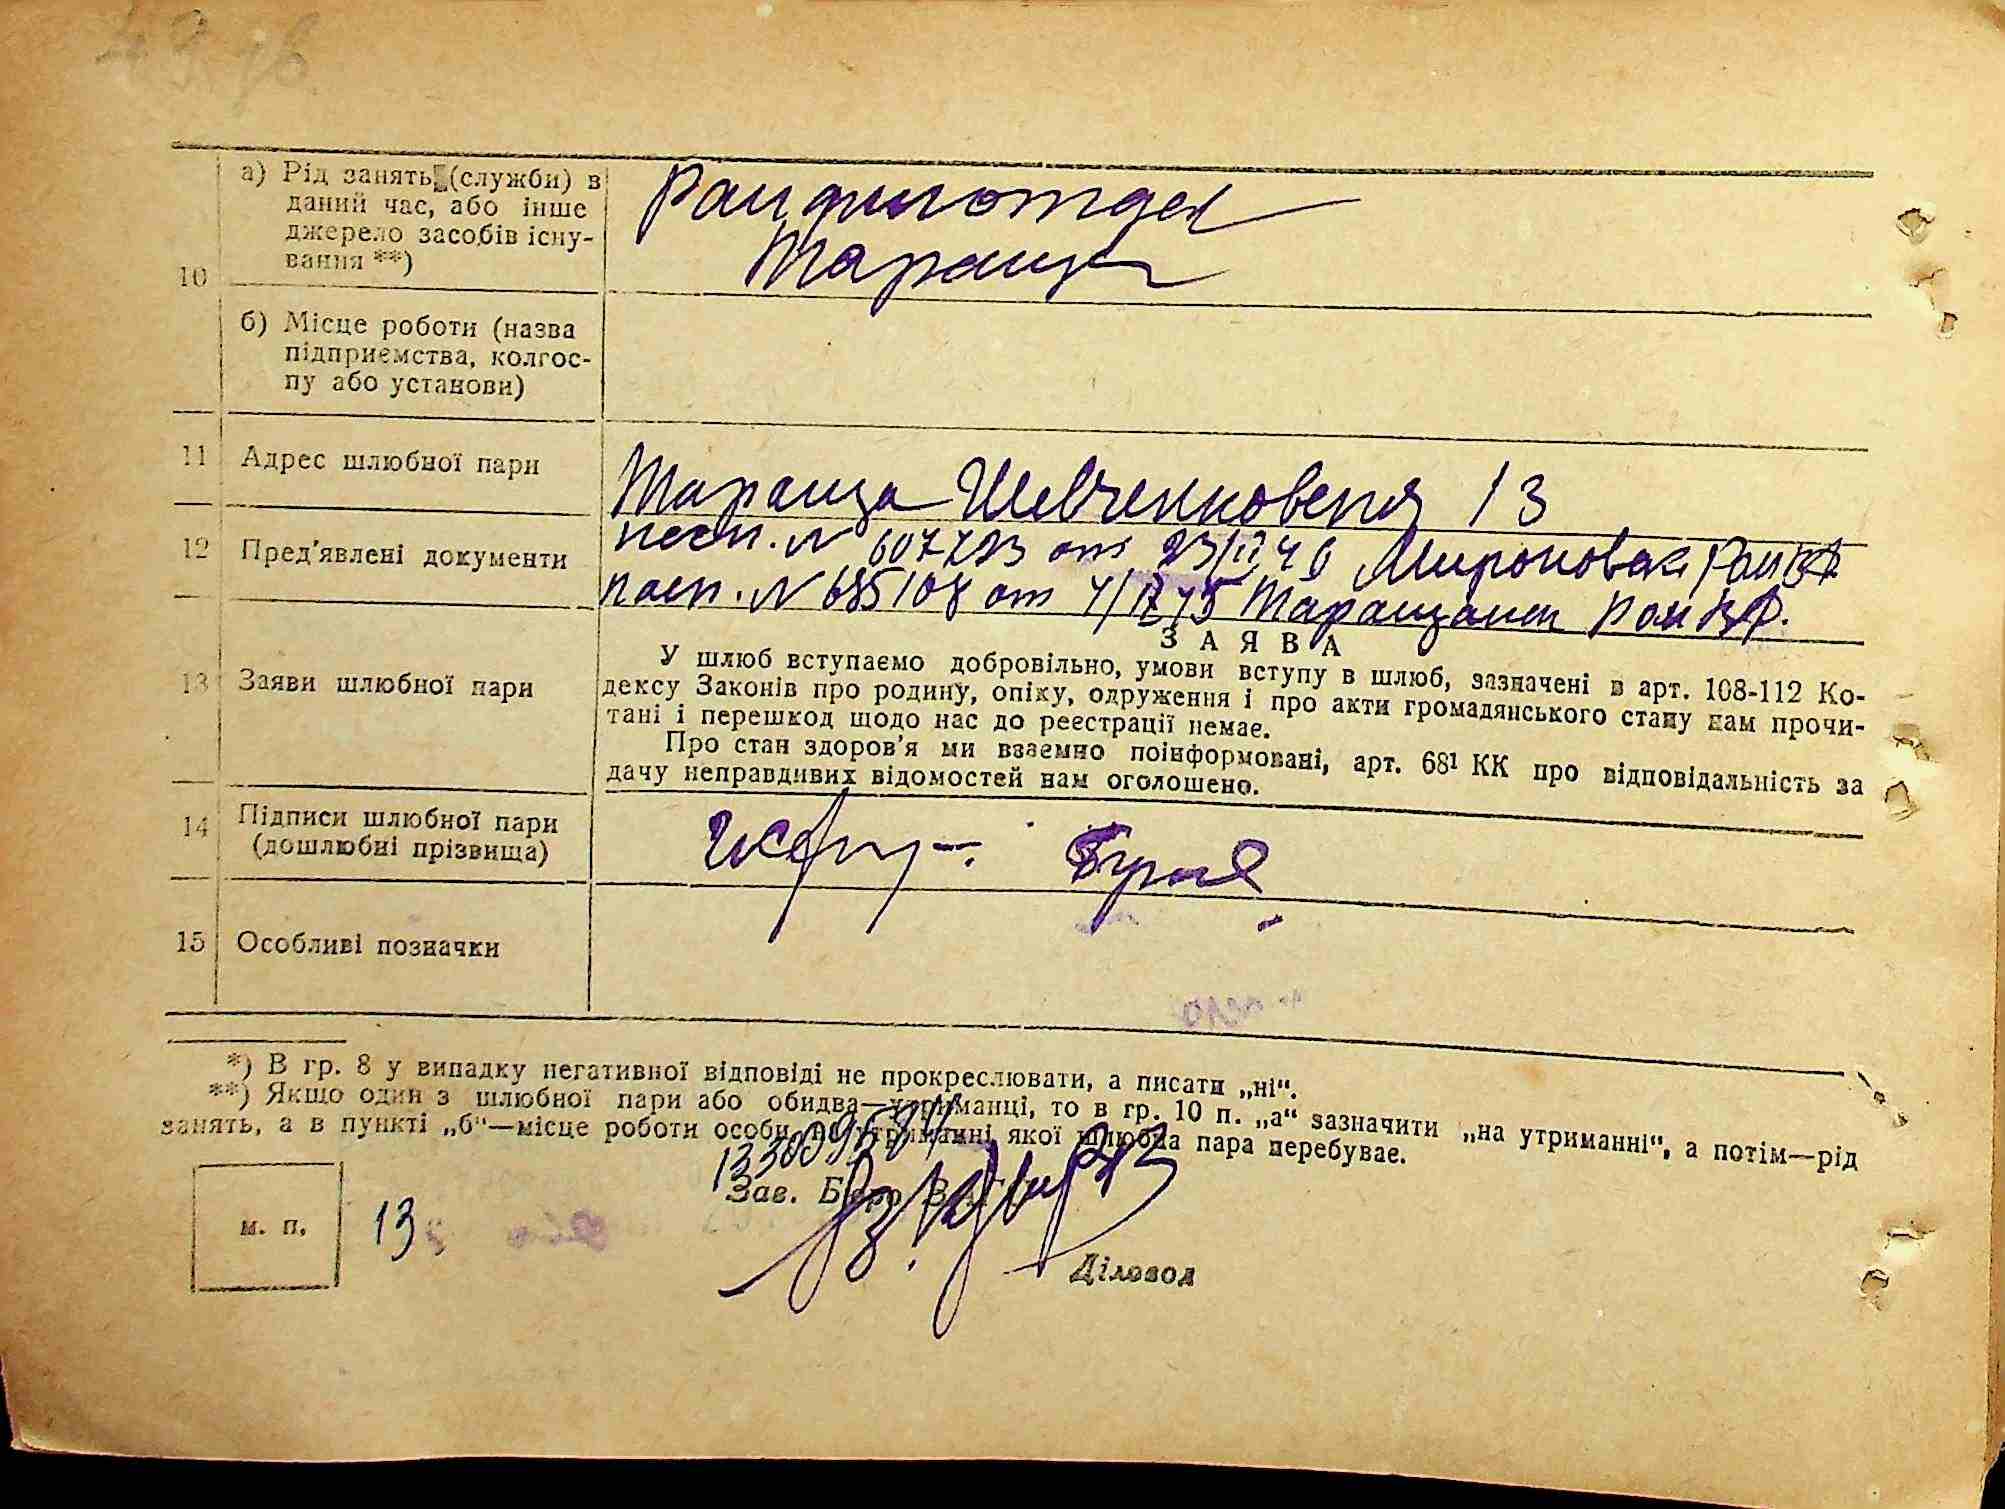 10
а) Рід занять (служби) в
даний час, або інше
джерело засобів існу-
вання **)
Райфинотдел
Тараща
б) Місце роботи (назва
підприємства, колгос-
пу або установи)
11 Адрес шлюбної пари
Тараща Шевченковская 13
12 Пред'явлені документи
пасп. N 607723 от 23/II 46 Мироновск РайВД
пасп. N 685108 от 4/IX 45 Таращанск
13 Заяви шлюбної пари
ЗАЯВА
У шлюб вступаємо добровільно, умови вступу в шлюб, зазначені в арт. 108-112 Ко-
дексу Законів про родину, опіку, одруження і про акти громадянського стану нам прочи-
тані і перешкод щодо нас до реєстрації немає.
Про стан здоров'я ми взаємно поінформовані, арт. 68¹ КК про відповідальність за
дачу неправдивих відомостей нам оголошено.
14 Підписи шлюбної пари
(дошлюбні прізвища)
15 Особливі позначки
*) В гр. 8 у випадку негативної відповіді не прокреслювати, а писати „ні“.
**) Якщо один з шлюбної пари або обидва—утриманці, то в гр. 10 п. „а“ зазначити „на утриманні“, а потім—рід
занять, а в пункті „б“—місце роботи особи, на утриманні якої шлюбна пара перебуває.
Зав. Бюро ЗАГС
м. п.
13
Діловод